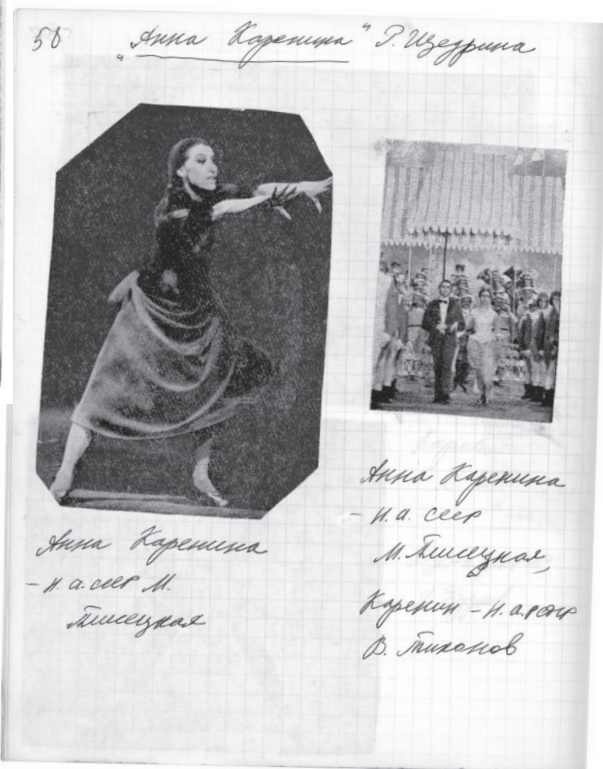 58 „Анна Каренина" Р. Щедрина
Анна Каренина
– н.а. ссср М.
Плисецкая
Анна Каренина
– н.а. ссср
М. Плисецкая,
Каренин – н.а. рсфср
В. Тихонов